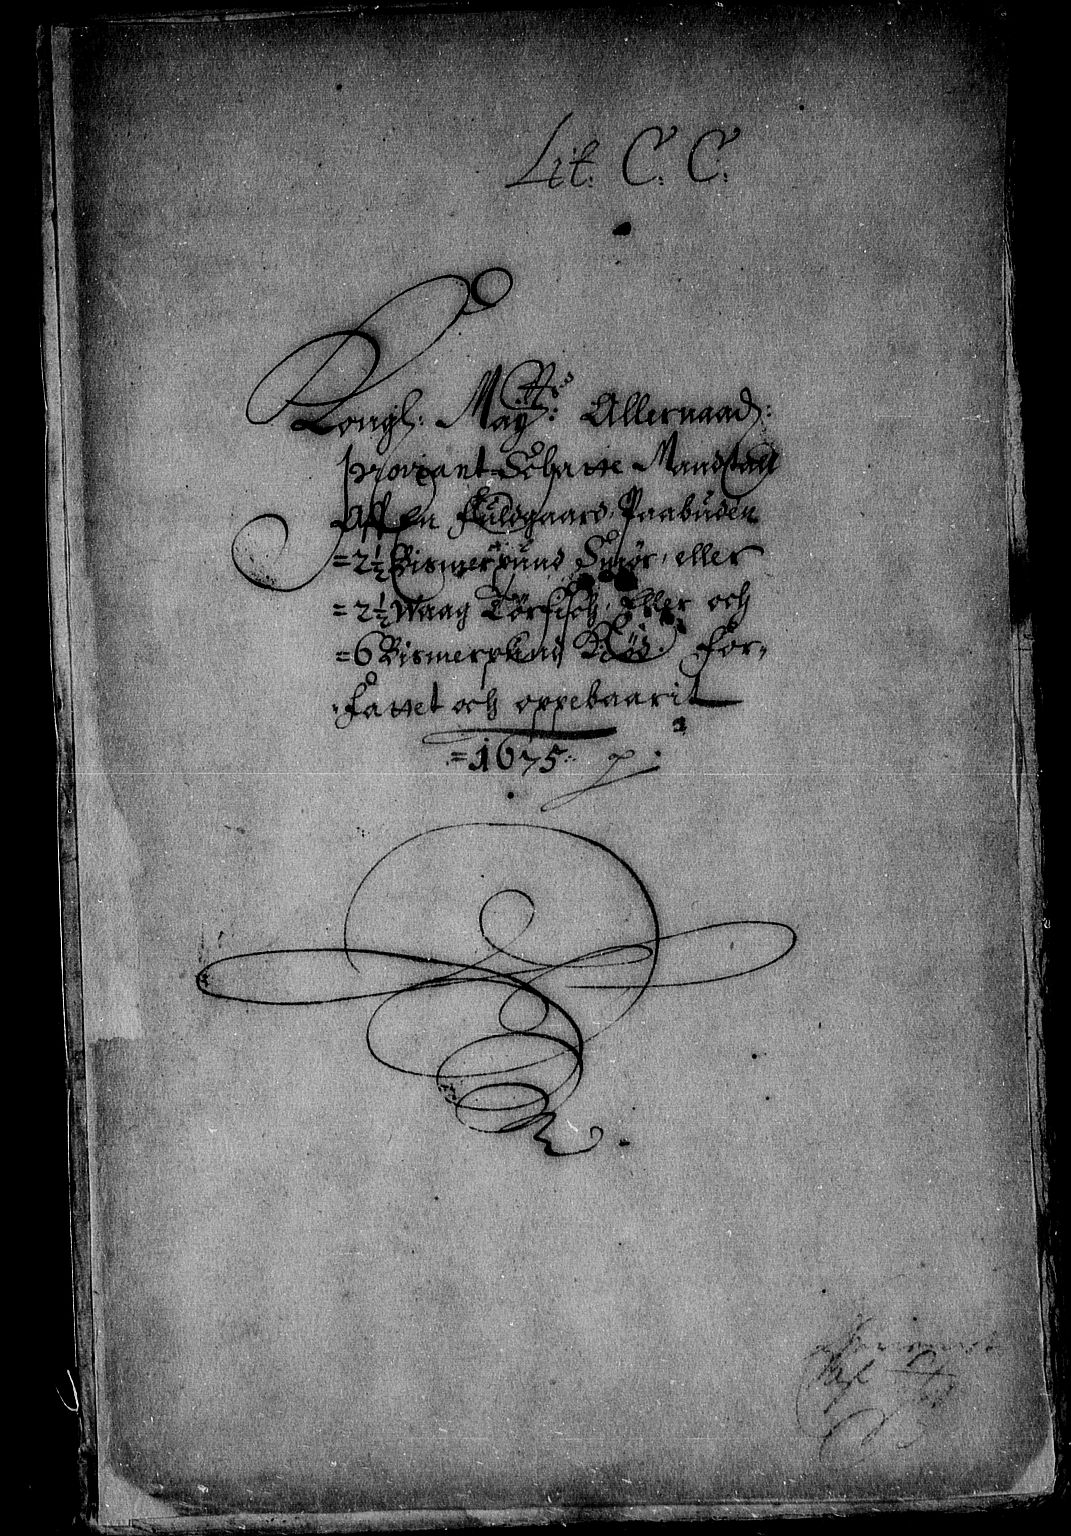 Lit. C. C.
Kongl: May:tts Allernaad:
proviant Schatte Mandtall
Aff En Fuldgaard Paabuden
=2½ Bismerpund Smör, eller
=2½ Waag Törfisch, Eller och
=6 Bismerpund Kiöd. For-
fattet och oppebaarit
=1675. p: